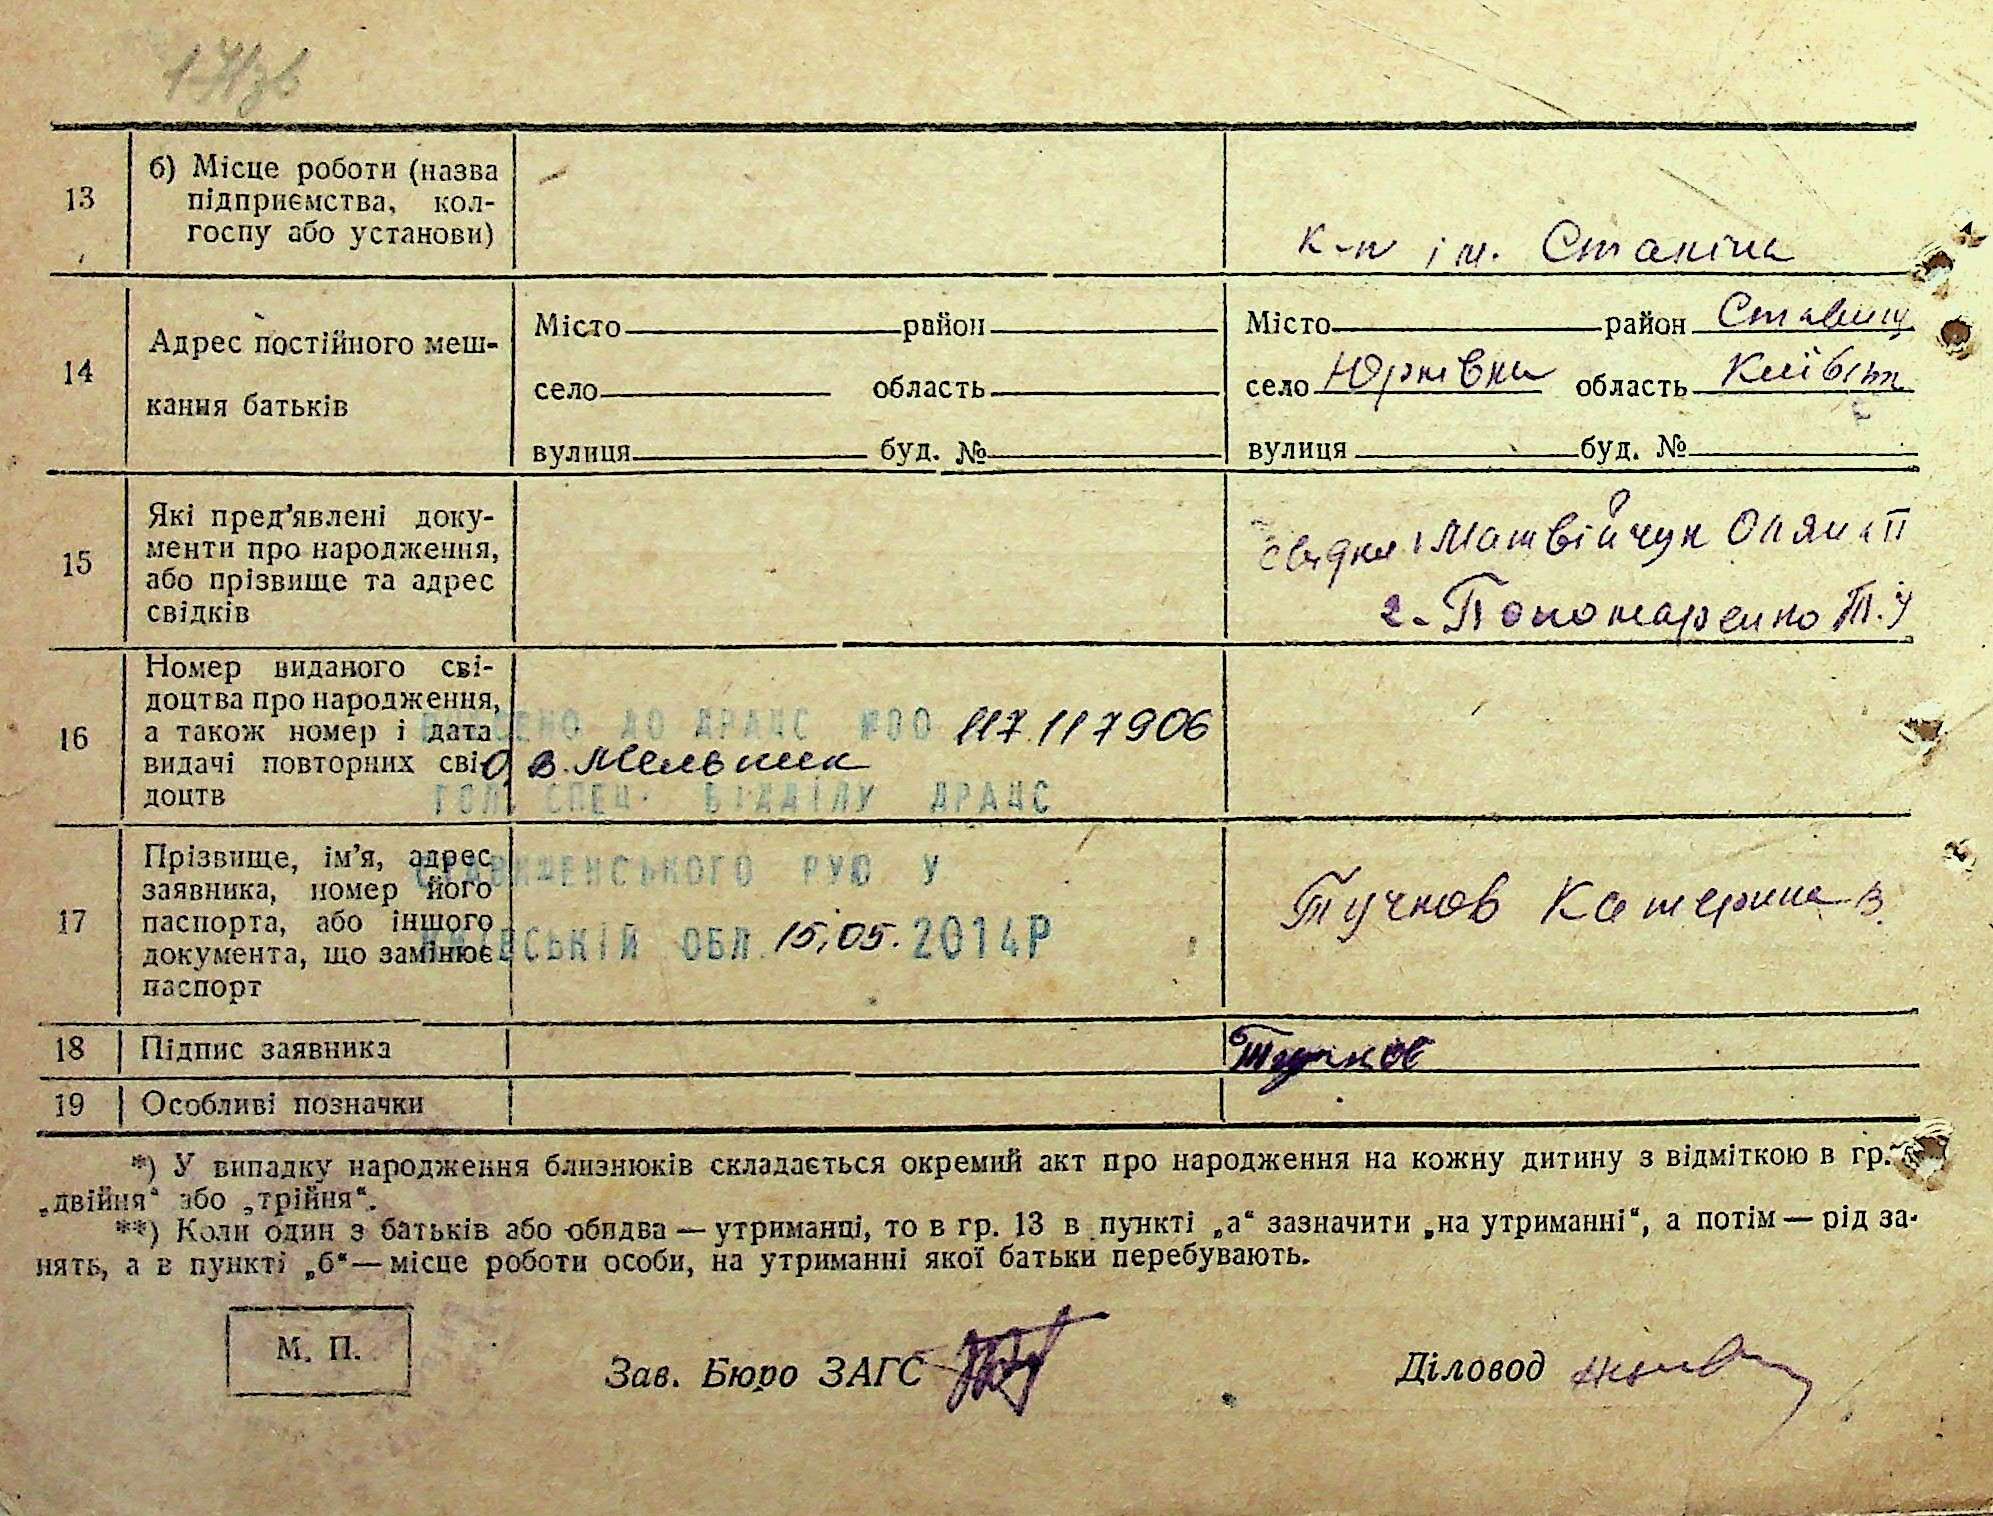 13
б) Місце роботи (назва
підприємства, кол-
госпу або установи)
к-п ім. Сталіна
14
Адрес постійного меш-
кання батьків
Місто район
село область
вулиця буд. №
Місто район Ставищ
село Юрківка область Київськ
вулиця буд. №
15
Які пред’явлені доку-
менти про народження,
або прізвище та адрес
свідків
свідки 1 Матвійчук Оляна П
2- Пономаренко Т. У
16
Номер виданого сві-
доцтва про народження,
а також номер і дата
видачі повторних сві-
доцтв
ВНЕСЕНО ДО ДРАЦС №00 117117906
О.В. Мельник
ГОЛ. СПЕЦ. ВІДДІЛУ ДРАЦС
17
Прізвище, ім’я, адрес
заявника, номер його
паспорта, або іншого
документа, що замінює
паспорт
СТАВИЩЕНСЬКОГО РУЮ У
КИЇВСЬКІЙ ОБЛ. 15.05. 2014Р
Тучков Катерина В.
18
Підпис заявника
Тучков
19
Особливі позначки
*) У випадку народження близнюків складається окремий акт про народження на кожну дитину з відміткою в гр.
„двійня“ або „трійня“.
**) Коли один з батьків або обидва — утриманці, то в гр. 13 в пункті „а“ зазначити „на утриманні“, а потім — рід за-
нять, а в пункті „б“ — місце роботи особи, на утриманні якої батьки перебувають.
М. П.
Зав. Бюро ЗАГС
Діловод